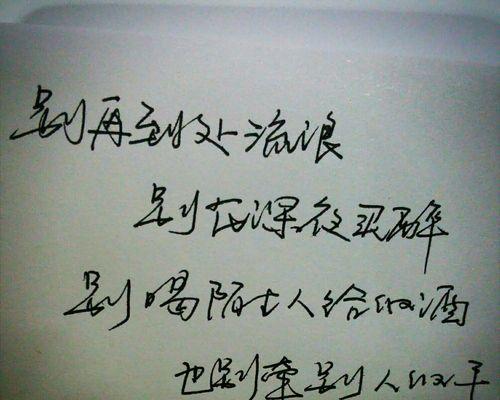 别再到处流浪
别在深夜买醉
别喝陌生人给的酒
也别牵别人的手